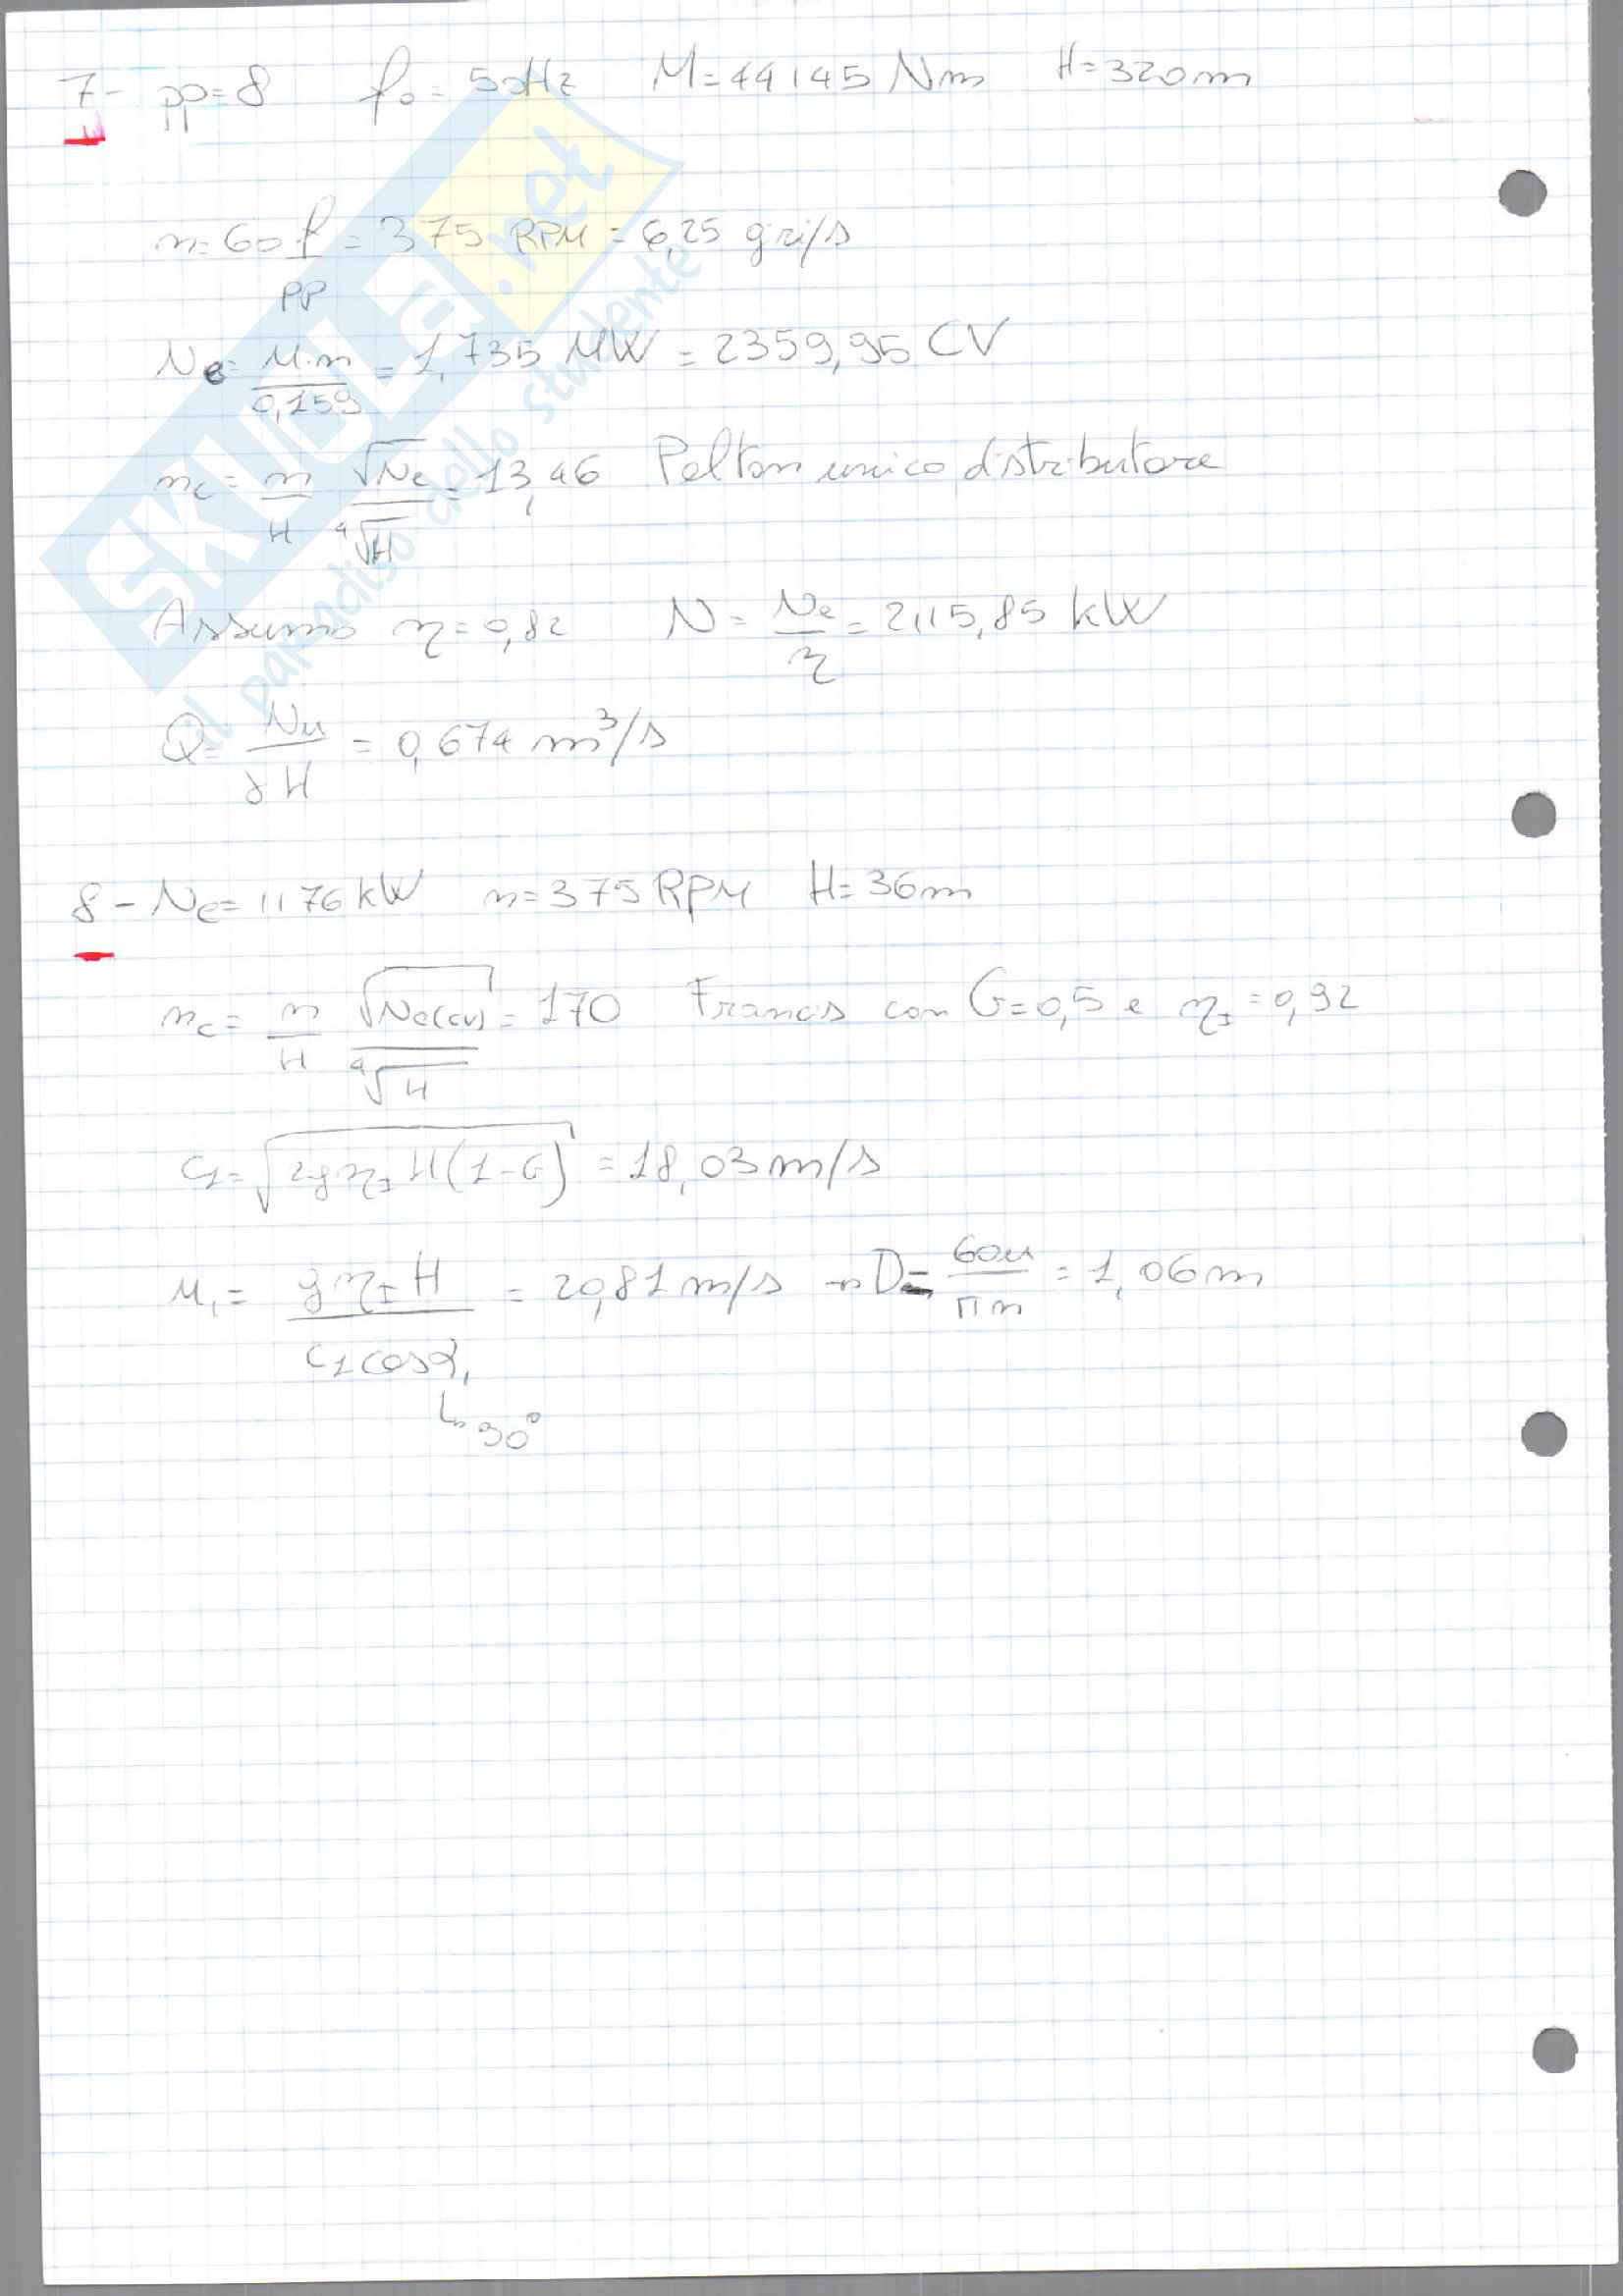 7- pp=8 f₀= 50Hz M=44145 Nm H=320m
n=60 f/pp = 375 RPM = 6,25 giri/s
Ne= M·n/0,159 = 1,735 MW = 2359,95 CV
nc= n/H √Ne/⁴√H = 13,46 Pelton unico distributore
Assumo η=0,82 N= Ne/η = 2115,85 kW
Q= Nu/γH = 0,674 m³/s
8- Ne=1176kW n=375RPM H=36m
nc= n/H √Ne(cv)/⁴√H = 170 Francis con G=0,5 e ηI=0,92
c1=√(2gηI H(1-G)) = 18,03m/s
u1= gηI H/c1cosα1 = 20,81m/s → D= 60u/πn = 1,06m
↳ 30°
SKUOLA.net
il paradiso dello studente